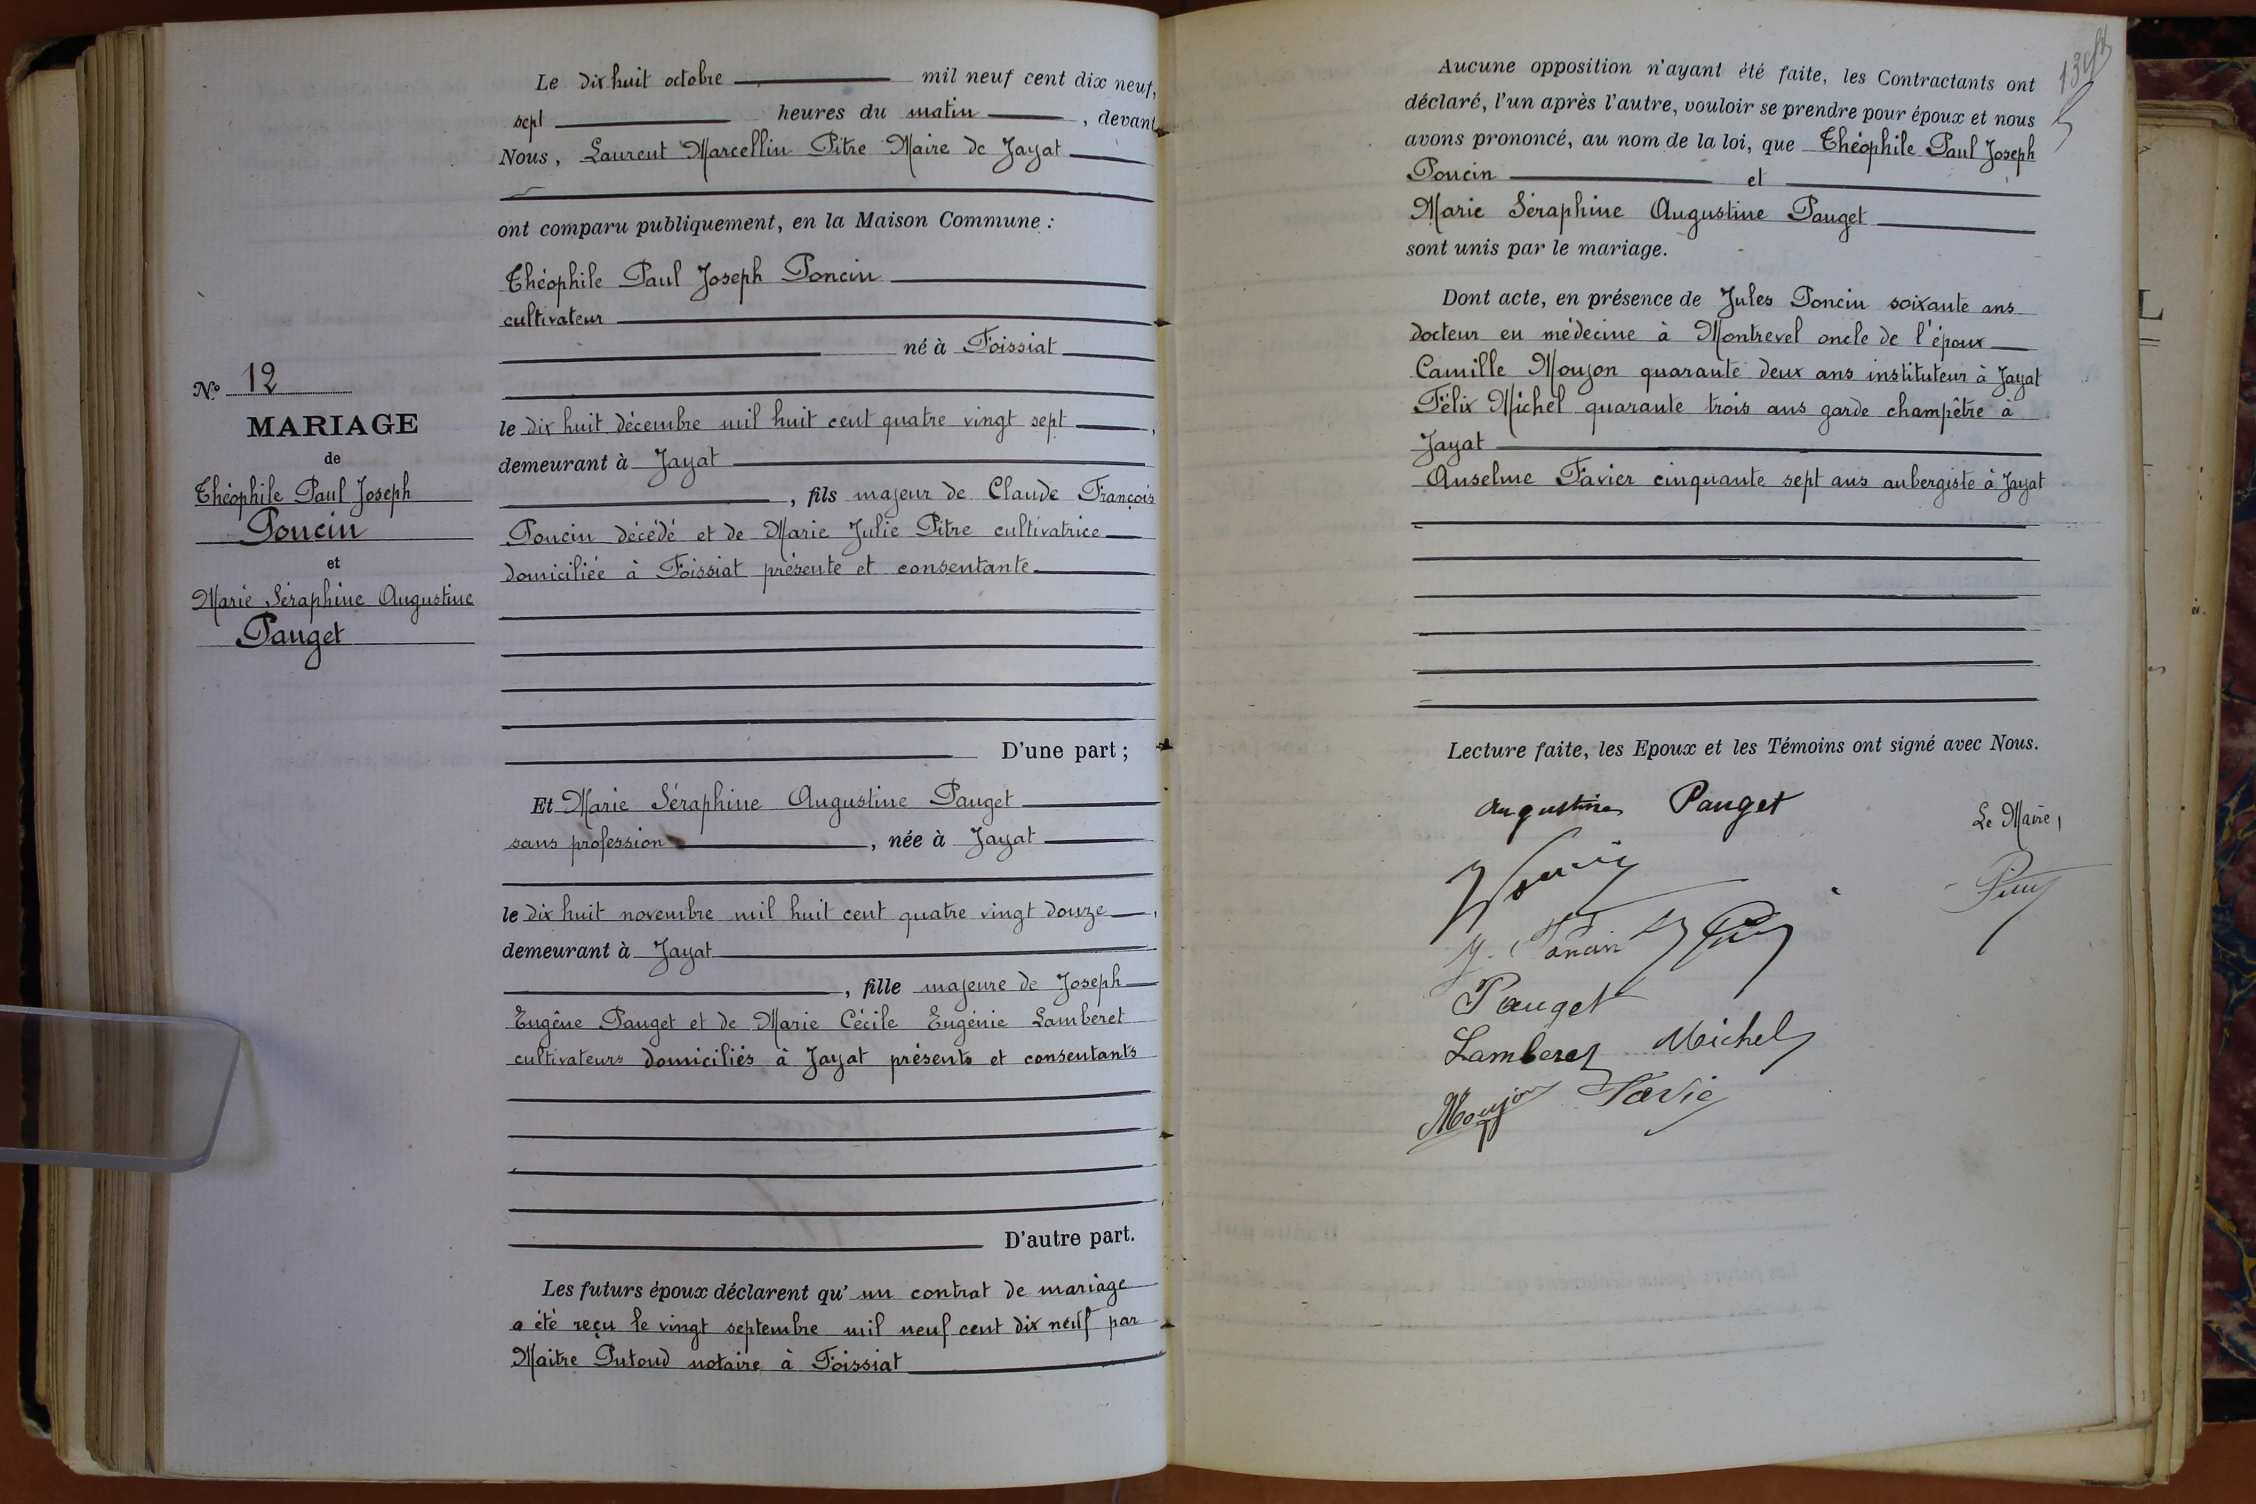 Le dix huit octobre mil neuf cent dix neuf,
sept heures du matin, devant
Nous, Laurent Marcellin Pitre Maire de Jayat
ont comparu publiquement, en la Maison Commune :
Théophile Paul Joseph Poncin
cultivateur
né à Foissiat
le dix huit décembre mil huit cent quatre vingt sept,
demeurant à Jayat
, fils majeur de Claude François
Poncin décédé et de Marie Julie Pitre cultivatrice
domiciliée à Foissiat présente et consentante
D'une part ;
Et Marie Séraphine Augustine Pauget
sans profession, née à Jayat
le dix huit novembre mil huit cent quatre vingt douze,
demeurant à Jayat
, fille majeure de Joseph
Eugène Pauget et de Marie Cécile Eugénie Lamberet
cultivateurs domiciliés à Jayat présents et consentants
D'autre part.
Les futurs époux déclarent qu'un contrat de mariage
a été reçu le vingt septembre mil neuf cent dix neuf par
Maitre Putoud notaire à Foissiat
No 12
MARIAGE
de
Théophile Paul Joseph
Poncin
et
Marie Séraphine Augustine
Pauget
Aucune opposition n'ayant été faite, les Contractants ont
déclaré, l'un après l'autre, vouloir se prendre pour époux et nous
avons prononcé, au nom de la loi, que Théophile Paul Joseph
Poncin et
Marie Séraphine Augustine Pauget
sont unis par le mariage.
Dont acte, en présence de Jules Poncin soixante ans
docteur en médecine à Montrevel oncle de l'époux
Camille Moujon quarante deux ans instituteur à Jayat
Félix Michel quarante trois ans garde champêtre à
Jayat
Anselme Favier cinquante sept ans aubergiste à Jayat
Lecture faite, les Epoux et les Témoins ont signé avec Nous.
Augustine Pauget
Le Maire,
J. Poncin
Pauget
Lamberet Michel
Moujon Favier